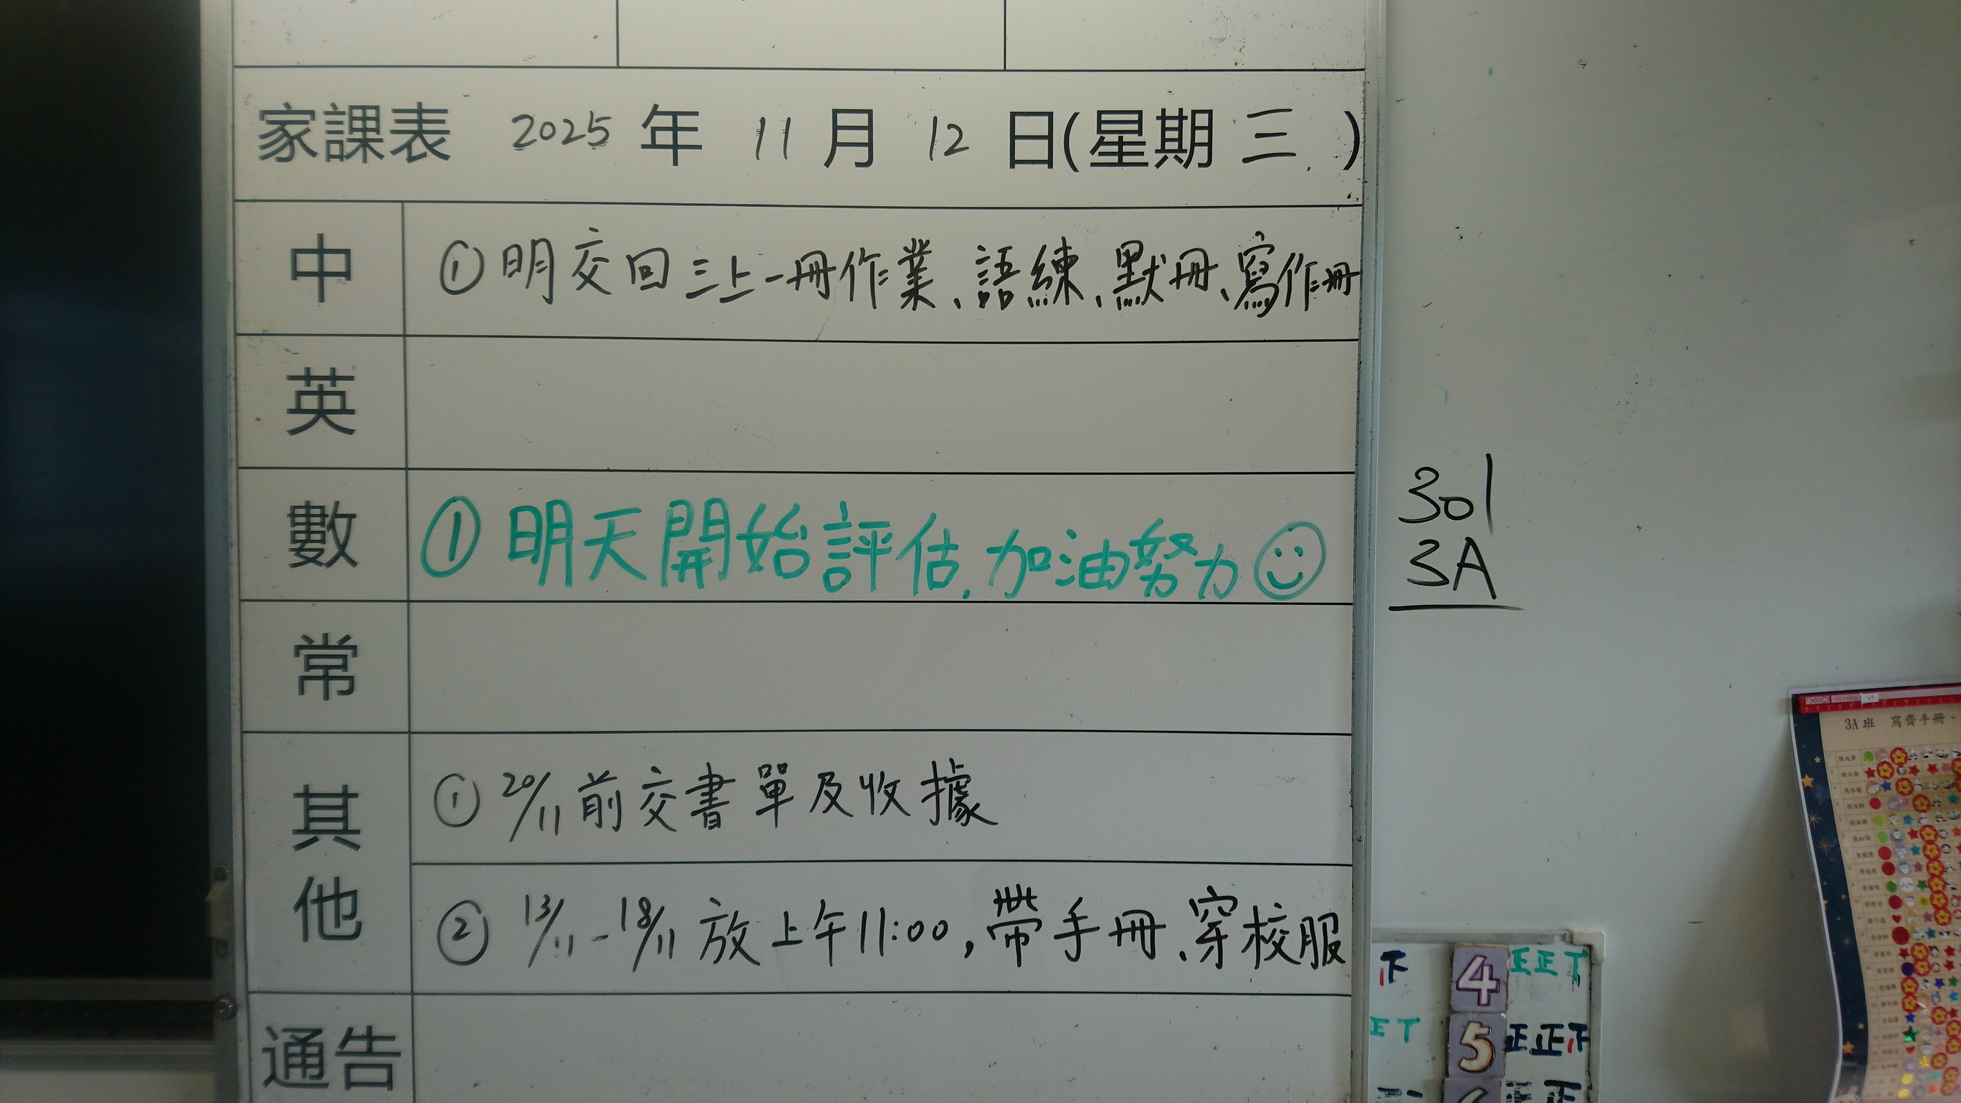 家課表 2025 年 11 月 12 日(星期 三 )
中 ①明交回三上一冊作業、語練、默冊、寫作冊
英
數 ①明天開始評估,加油努力
常
其他 ①20/11前交書單及收據
②13/11-18/11放上午11:00,帶手冊、穿校服
通告
301
3A
3A班 寫齊手冊
下 4 正正丅
正丅 5 正正下